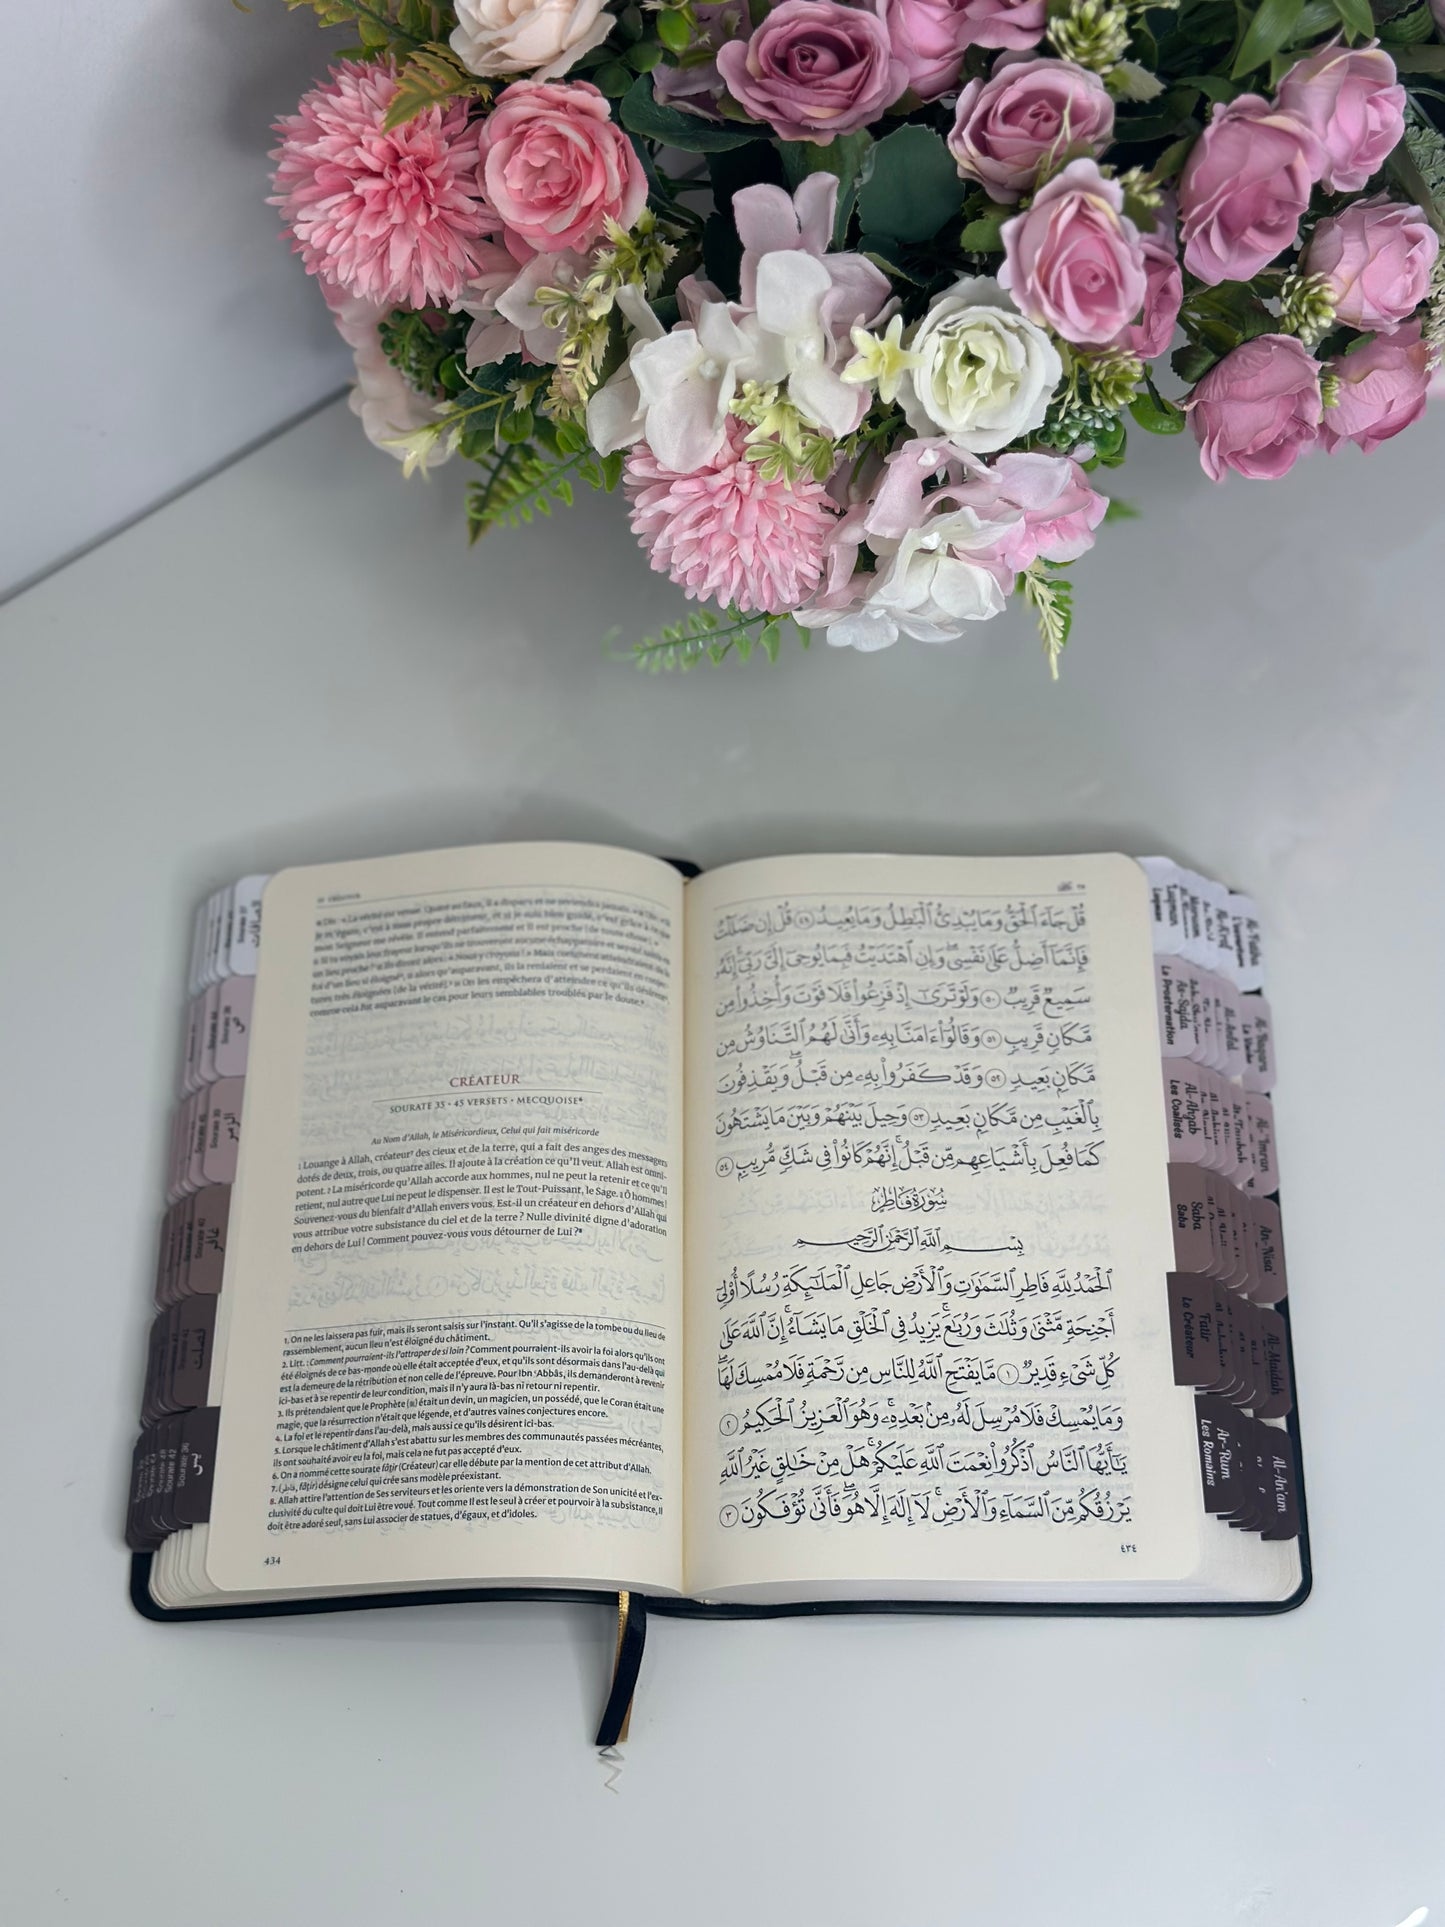 « Dis : « La vérité est venue. Quant au faux, il a disparu et ne reviendra jamais. » Dis : « Si
je m'égare, c'est à mon propre détriment, et si je suis bien guidé, c'est grâce à ce que
mon Seigneur me révèle. Il entend parfaitement et Il est proche
comme cela fut auparavant le cas pour leurs semblables troublés par le doute.
CRÉATEUR
SOURATE 35 • 45 VERSETS • MECQUOISE⁶
Au Nom d'Allah, le Miséricordieux, Celui qui fait miséricorde
1 Louange à Allah, créateur⁷ des cieux et de la terre, qui a fait des anges des messagers
dotés de deux, trois, ou quatre ailes. Il ajoute à la création ce qu'Il veut. Allah est omni-
potent. 2 La miséricorde qu'Allah accorde aux hommes, nul ne peut la retenir et ce qu'Il
retient, nul autre que Lui ne peut le dispenser. Il est le Tout-Puissant, le Sage. 3 Ô hommes !
Souvenez-vous du bienfait d'Allah envers vous. Est-il un créateur en dehors d'Allah qui
vous attribue votre subsistance du ciel et de la terre ? Nulle divinité digne d'adoration
en dehors de Lui ! Comment pouvez-vous vous détourner de Lui ?⁸
1. On ne les laissera pas fuir, mais ils seront saisis sur l'instant. Qu'il s'agisse de la tombe ou du lieu de
rassemblement, aucun lieu n'est éloigné du châtiment.
2. Litt. : Comment pourraient-ils l'attraper de si loin ? Comment pourraient-ils avoir la foi alors qu'ils ont
été éloignés de ce bas-monde où elle était acceptée d'eux, et qu'ils sont désormais dans l'au-delà qui
est la demeure de la rétribution et non celle de l'épreuve. Pour Ibn 'Abbâs, ils demanderont à revenir
ici-bas et à se repentir de leur condition, mais il n'y aura là-bas ni retour ni repentir.
3. Ils prétendaient que le Prophète (ﷺ) était un devin, un magicien, un possédé, que le Coran était une
magie, que la résurrection n'était que légende, et d'autres vaines conjectures encore.
4. La foi et le repentir dans l'au-delà, mais aussi ce qu'ils désirent ici-bas.
5. Lorsque le châtiment d'Allah s'est abattu sur les membres des communautés passées mécréantes,
ils ont souhaité avoir eu la foi, mais cela ne fut pas accepté d'eux.
6. On a nommé cette sourate fâtir (Créateur) car elle débute par la mention de cet attribut d'Allah.
7. (فاطر, fâtir) désigne celui qui crée sans modèle préexistant.
8. Allah attire l'attention de Ses serviteurs et les oriente vers la démonstration de Son unicité et l'ex-
clusivité du culte qui doit Lui être voué. Tout comme Il est le seul à créer et pourvoir à la subsistance, Il
doit être adoré seul, sans Lui associer de statues, d'égaux, et d'idoles.
434
قُلْ جَآءَ ٱلْحَقُّ وَمَا يُبْدِئُ ٱلْبَٰطِلُ وَمَا يُعِيدُ ٤٩ قُلْ إِن ضَلَلْتُ
فَإِنَّمَآ أَضِلُّ عَلَىٰ نَفْسِى وَإِنِ ٱهْتَدَيْتُ فَبِمَا يُوحِىٓ إِلَىَّ رَبِّىٓ إِنَّهُۥ
سَمِيعٌ قَرِيبٌ ٥٠ وَلَوْ تَرَىٰٓ إِذْ فَزِعُوا۟ فَلَا فَوْتَ وَأُخِذُوا۟ مِن
مَّكَانٍ قَرِيبٍ ٥١ وَقَالُوٓا۟ ءَامَنَّا بِهِۦ وَأَنَّىٰ لَهُمُ ٱلتَّنَاوُشُ مِن
مَّكَانٍۭ بَعِيدٍ ٥٢ وَقَدْ كَفَرُوا۟ بِهِۦ مِن قَبْلُ وَيَقْذِفُونَ
بِٱلْغَيْبِ مِن مَّكَانٍۭ بَعِيدٍ ٥٣ وَحِيلَ بَيْنَهُمْ وَبَيْنَ مَا يَشْتَهُونَ
كَمَا فُعِلَ بِأَشْيَاعِهِم مِّن قَبْلُ إِنَّهُمْ كَانُوا۟ فِى شَكٍّ مُّرِيبٍ ٥٤
سُورَةُ فَاطِرٍ
بِسْمِ ٱللَّهِ ٱلرَّحْمَٰنِ ٱلرَّحِيمِ
ٱلْحَمْدُ لِلَّهِ فَاطِرِ ٱلسَّمَٰوَٰتِ وَٱلْأَرْضِ جَاعِلِ ٱلْمَلَٰٓئِكَةِ رُسُلًا أُو۟لِىٓ
أَجْنِحَةٍ مَّثْنَىٰ وَثُلَٰثَ وَرُبَٰعَ يَزِيدُ فِى ٱلْخَلْقِ مَا يَشَآءُ إِنَّ ٱللَّهَ عَلَىٰ
كُلِّ شَىْءٍ قَدِيرٌ ١ مَّا يَفْتَحِ ٱللَّهُ لِلنَّاسِ مِن رَّحْمَةٍ فَلَا مُمْسِكَ لَهَا
وَمَا يُمْسِكْ فَلَا مُرْسِلَ لَهُۥ مِنۢ بَعْدِهِۦ وَهُوَ ٱلْعَزِيزُ ٱلْحَكِيمُ ٢
يَٰٓأَيُّهَا ٱلنَّاسُ ٱذْكُرُوا۟ نِعْمَتَ ٱللَّهِ عَلَيْكُمْ هَلْ مِنْ خَٰلِقٍ غَيْرُ ٱللَّهِ
يَرْزُقُكُم مِّنَ ٱلسَّمَآءِ وَٱلْأَرْضِ لَآ إِلَٰهَ إِلَّا هُوَ فَأَنَّىٰ تُؤْفَكُونَ ٣
٤٣٤
الصافات
ص
Sourate 38
الزمر
Sourate 39
غافر
Sourate 40
فصلت
يس
Sourate 36
Luqman
As-Sajda
La Prosternation
Al-Ahzab
Les Coalisés
Saba
Saba
Fatir
Le Créateur
Ar-Rum
Les Romains
Al-Fatiha
Al-Baqara
La Vache
Al-'Imran
An-Nisa'
Al-Maidah
Al-An'am